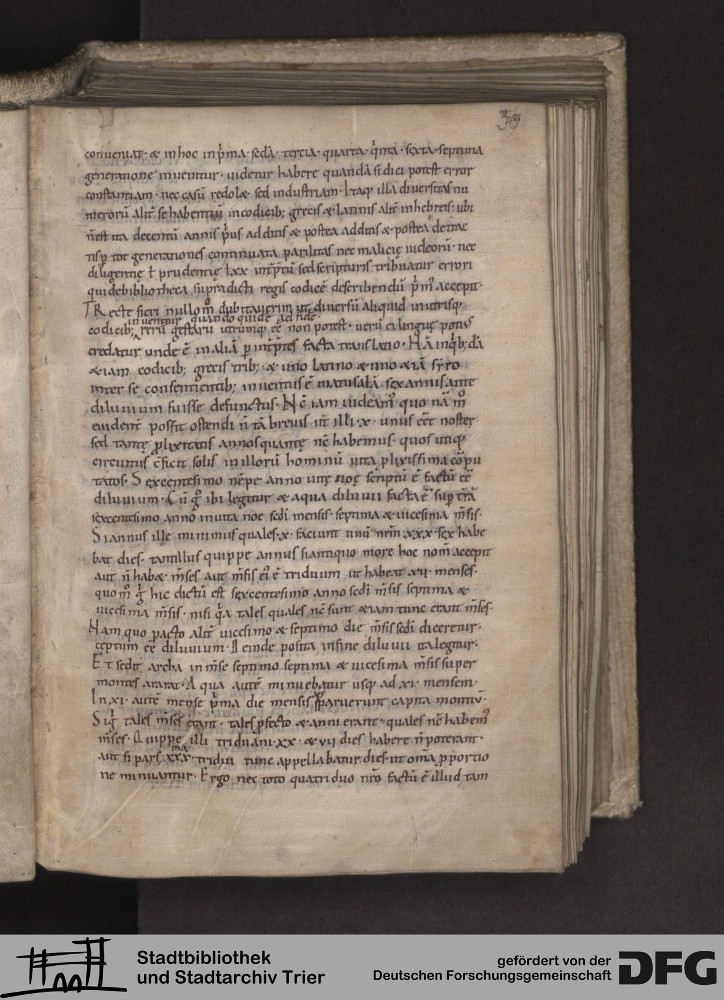 309
conveniat · & in hoc in p̄ma · sedā · tercia · quarta · q̊nta · sexta · septima
generatione invenitur · videtur habere quandā si dici potest error
constantiam · nec casū redolæ sed industriam · Itaq; illa diversitas nu
merorū alit̄ se habentiū in codicib; grecis & latinis alit̄ in hebreis · ubi
n̄ est ita decentū annis p̄us additis & postea additis & postea detrac
tisq; tot generationes continuata parilitas nec malicię iudeorū · nec
diligentię ł prudentię · lxx · int̄p̄tū sed scriptoris tribuatur errori
qui de bibliotheca sup̄radicti regis codicē describendū p̄m̄ accepit ·
Recte fieri nullom̊ dubitaverim ut diversū aliquid in utrisq;
invenitur quando quidē ad fidē
codicib; rerū gestarū utrūmq; eē non potest · verū ei linguę potius
credatur unde ē in aliā p̱ int̄p̄tes facta translatio · Nā in q̇b; dā
& iam codicib; grecis trib; · & uno latino & uno &iā syro
inter se consentientib; inventus ē matusalā sex annis ante
diluvium fuisse defunctus · Nc̄ iam videam᷒ quo nā m̊
evident̄ possit ostendi n̄ tā breves ut illi · x · unus eēt noster ·
sed tantę p̱lixitatis annos quantę nc̄ habemus · quos utiq;
circuitus c̄ficit solis in illorū hominū vita p̱lixissima cōpu
tatos · Sexcentesimo nēpe anno vitę noę scriptū ē factū eē
diluvium · Cū g̊ ibi legitur & aqua diluvii facta ē sup̱ t̄rā
sexcentesimo anno in vita noe sedi mensis · septima & vicesima m̄sis ·
Si annus ille minimus quales · x · faciunt unū nr̄m · xxx · sex habe
bat dies · tantillus quippe annus si antiquo more hoc nom̄ accepit
aut n̄ habæ m̄ses aut m̄sis ei᷒ ē triduum ut habeat xii · menses ·
quom̊ g̊ hic dictū est sexcentesimo anno sedi m̄sis septima &
vicesima m̄sis · nisi q̇a tales quales nc̄ sunt &iam tunc erant m̄ses ·
Nam quo pacto alit̄ vicesimo & septimo die m̄sis sedi diceretur ·
ceptum eē diluvium · Deinde posita in fine diluvii ita legitur ·
Et sedit archa in m̄se septimo septima & vicesima m̄sis super
montes ararat · Aqua autē minuebatur usq; ad · xi · mensem ·
In · xi · autē mense p̄ma die mensis apparuerunt capita montiū ·
Si g̊ tales m̄ses erant · tales p̱fecto & anni erant · quales nc̄ habem᷒
m̄ses · Quippe illi triduani · xx · & vii dies habere n̄ poterant ·
aut si pars · xxxma · tridui tunc appellabatur dies ut om̄a p̱portio
ne minuantur · Ergo nec toto quatriduo nr̄o factū ē illud tam
Stadtbibliothek
und Stadtarchiv Trier
gefördert von der
Deutschen Forschungsgemeinschaft
DFG